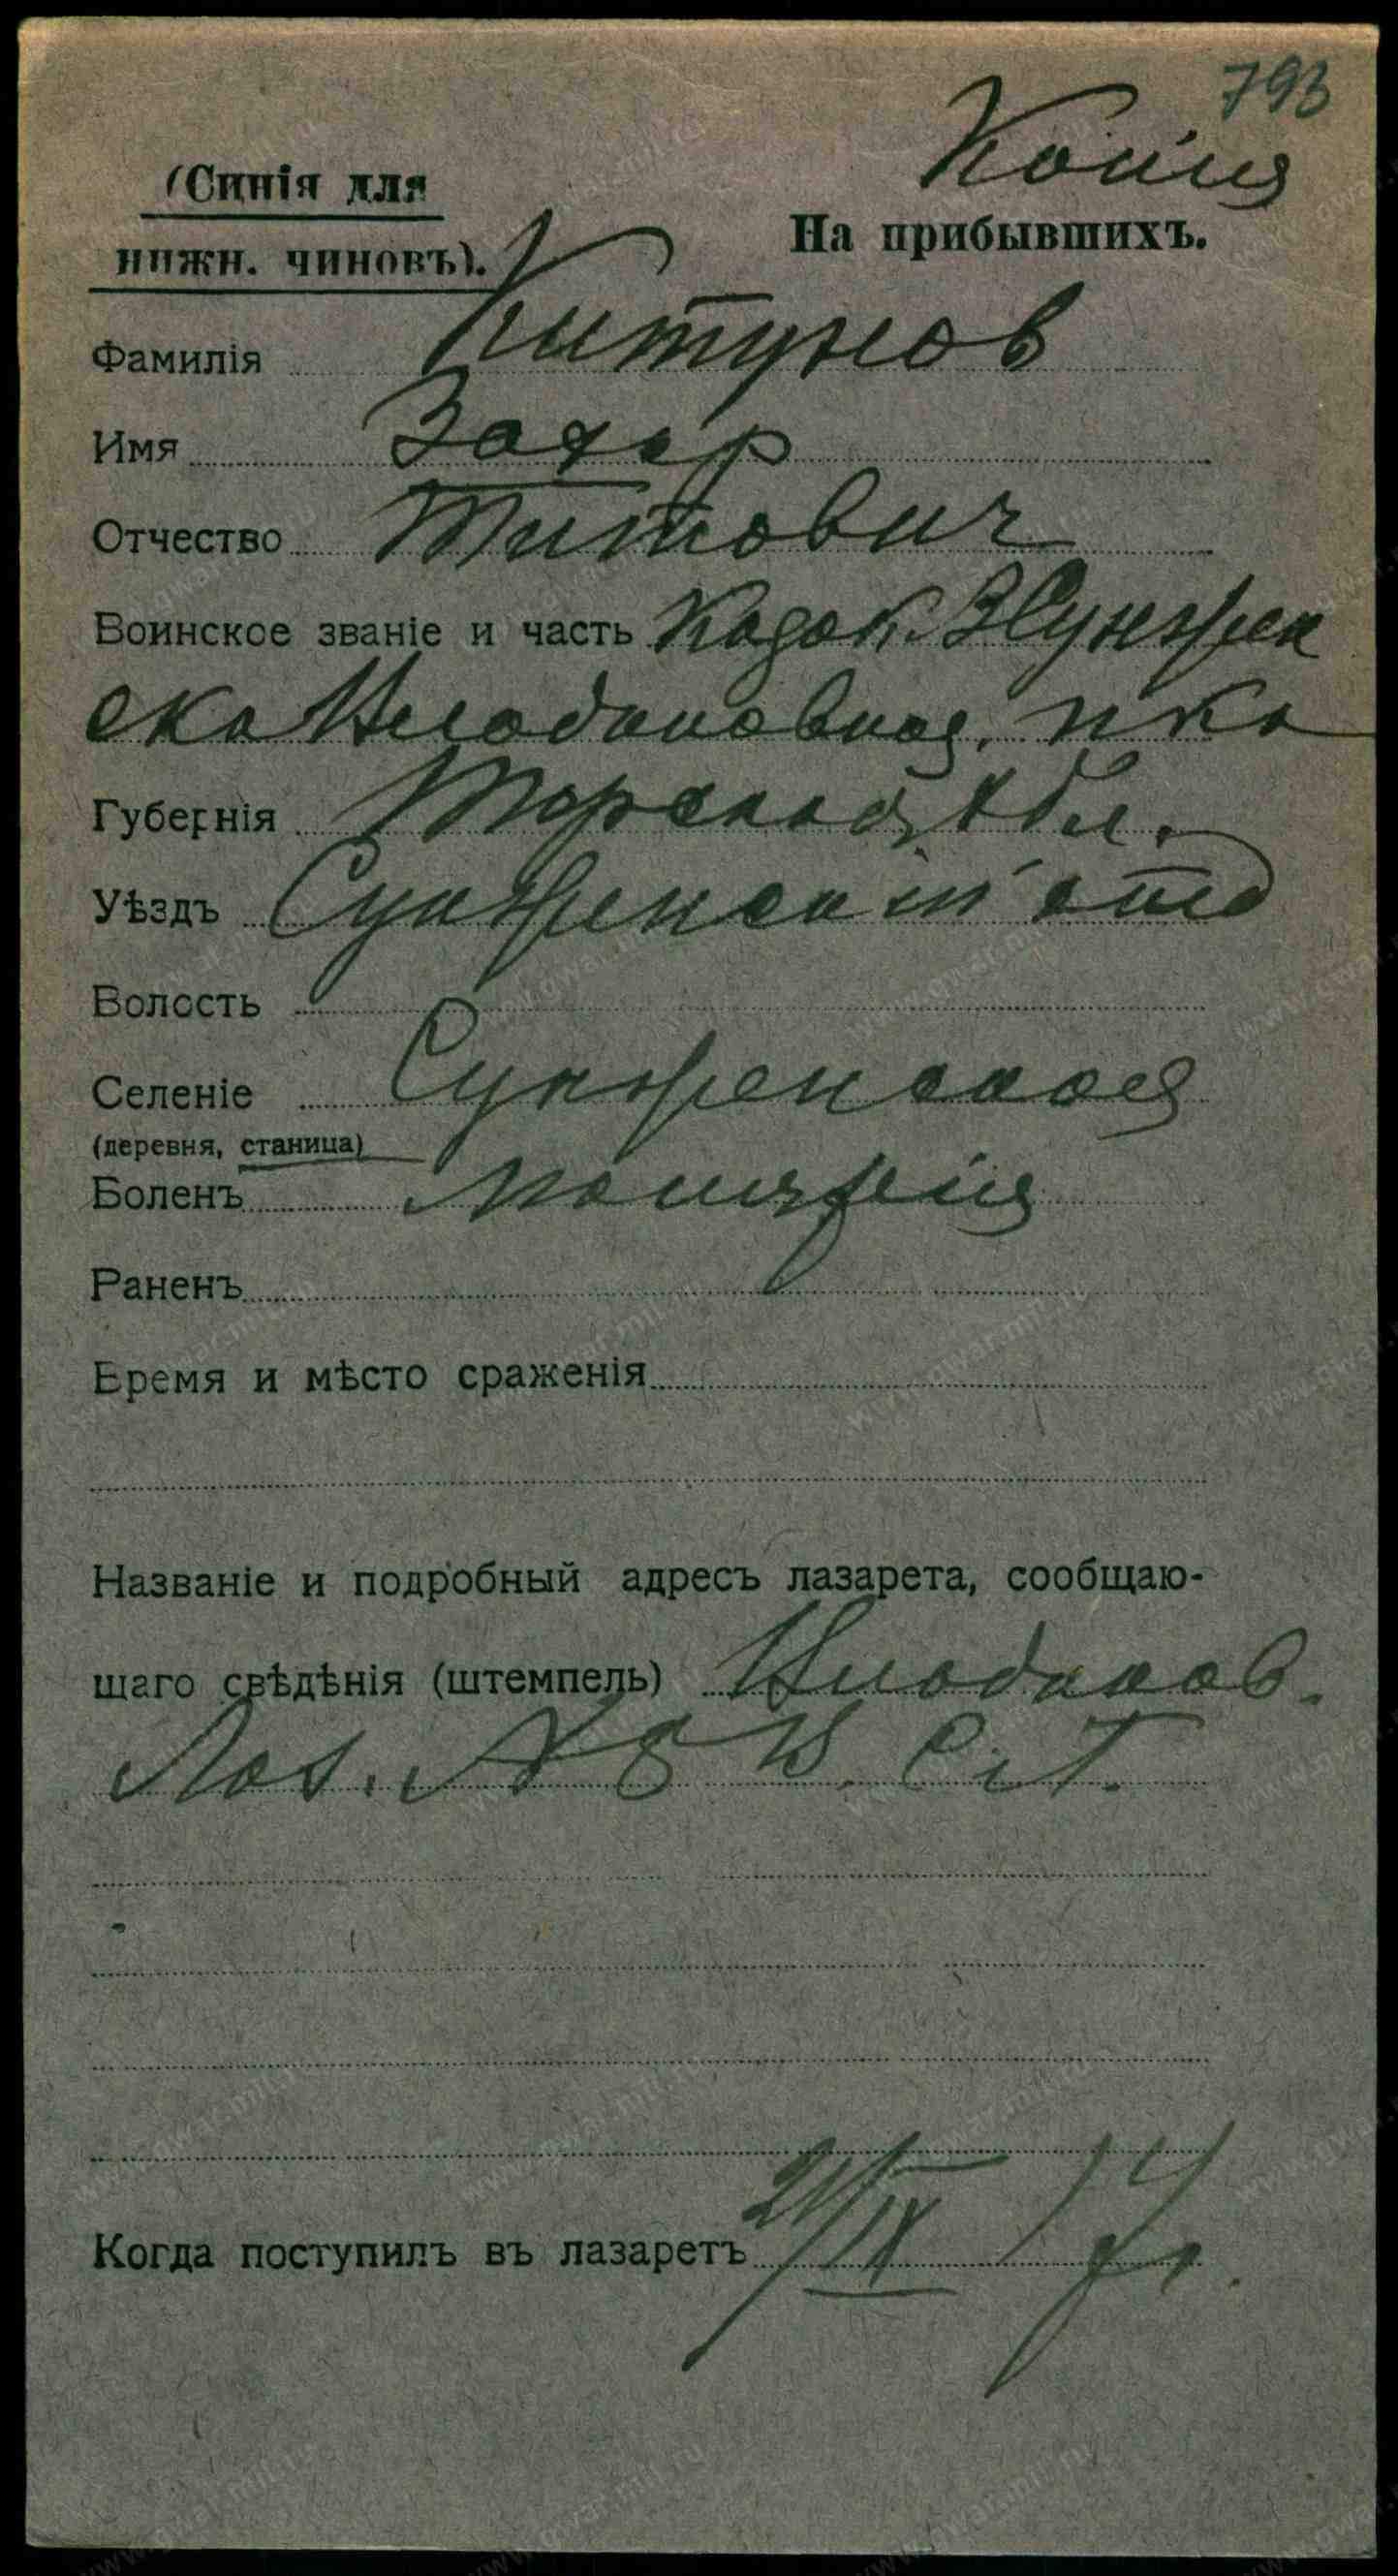 793
Копия
(Синія для
нижн. чиновъ).
На прибывшихъ.
Фамилія Китунов
Имя Захар
Отчество Титович
Воинское званіе и часть Казак 3 Сунжен
ско Владикавказ. пка
Губернія Терской Обл.
Уѣздъ Сунженскій отд
Волость
Селеніе Сунженской
(деревня, станица)
Боленъ малярія
Раненъ
Время и мѣсто сраженія
Названіе и подробный адресъ лазарета, сообщаю-
щаго свѣдѣнія (штемпель) Владикав.
Лаз. №8 В. С. Г.
Когда поступилъ въ лазаретъ 21/IX 17 г.